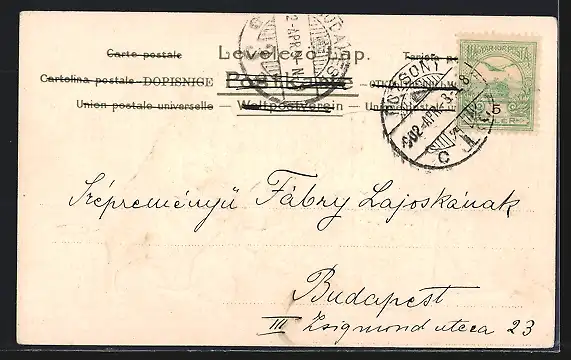 Carte postale Levelező-Lap.
Cartolina postale DOPISNICE Postkarte
Union postale universelle Weltpostverein
MAGYAR KIR. POSTA
5
POZSONY
902 APR
Szépreményü Fábry Lajoskának
Budapest
III Zsigmond utcza 23